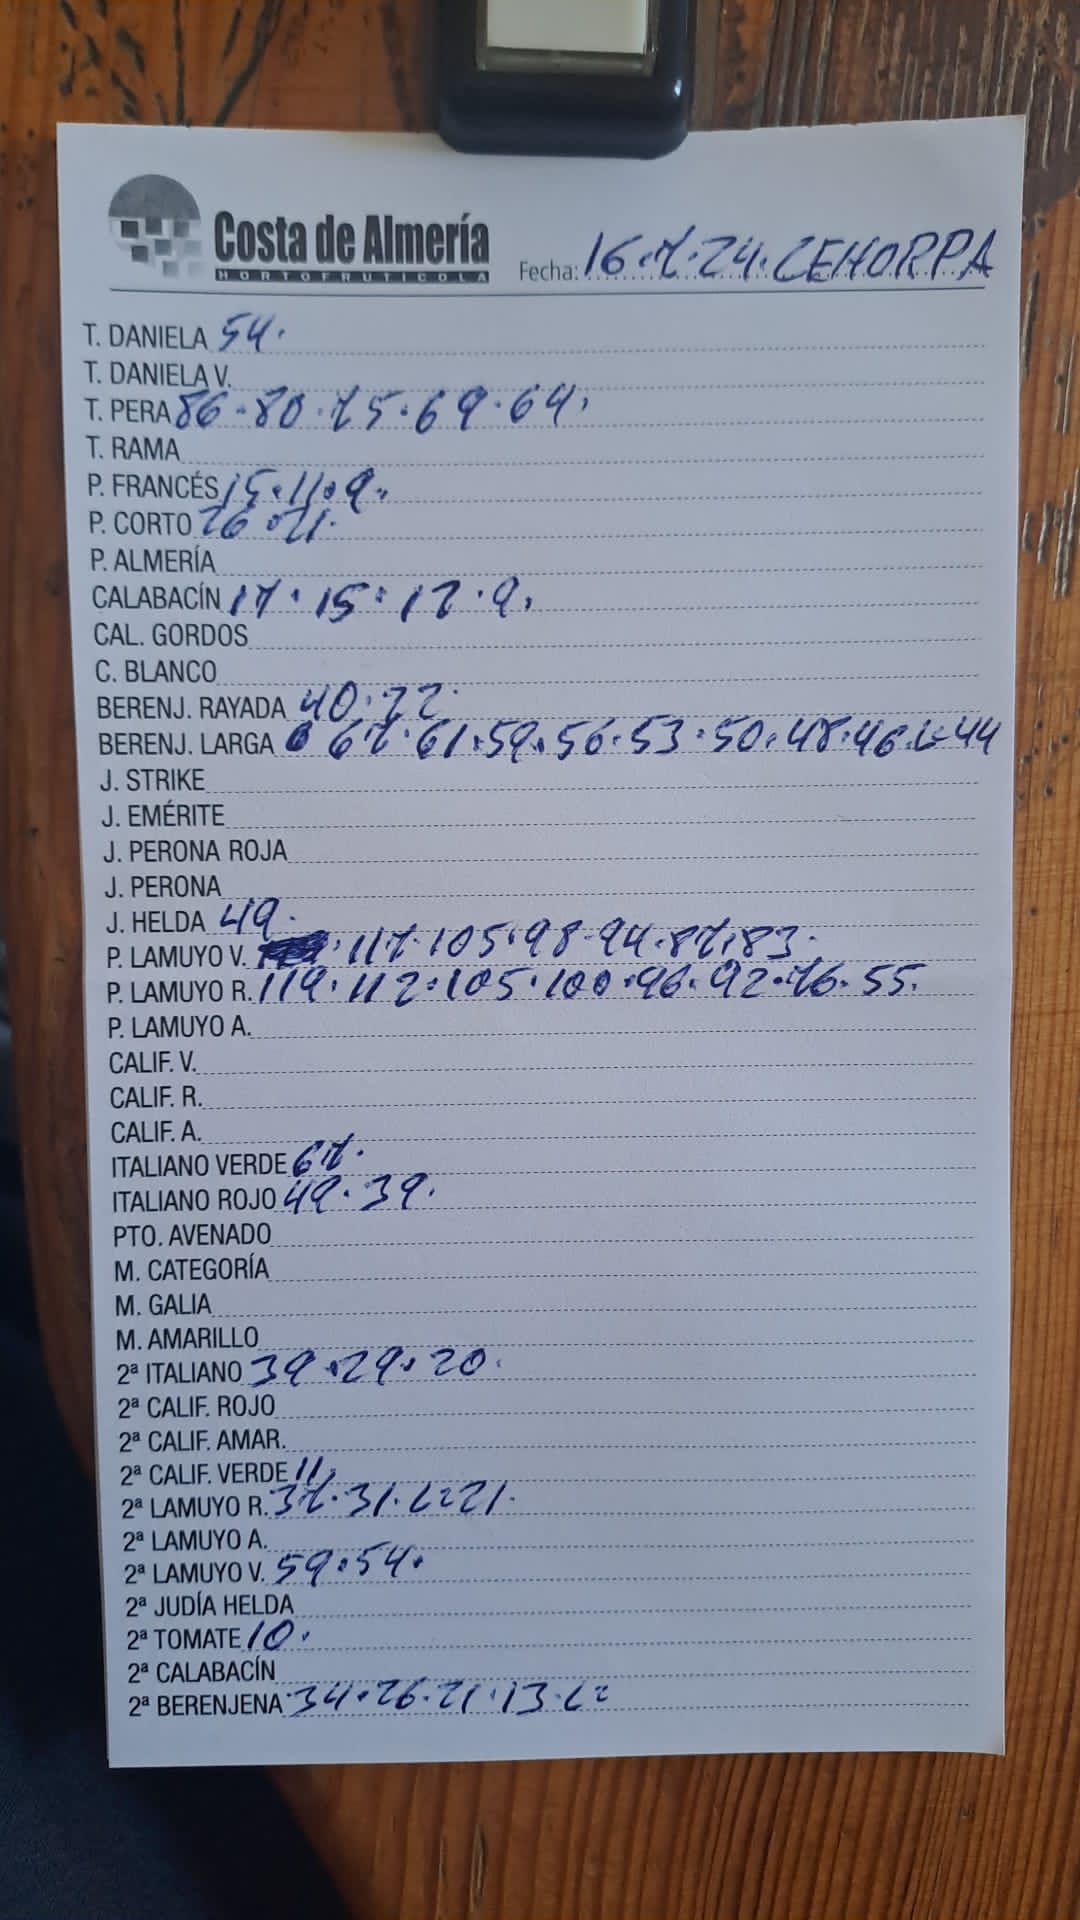 Costa de Almería
HORTOFRUTICOLA
Fecha: 16.7.24. CEHORPA
T. DANIELA 54.
T. DANIELA V.
T. PERA 86.80.75.69.64.
T. RAMA
P. FRANCÉS 15.11.9.
P. CORTO 26.21.
P. ALMERÍA
CALABACÍN 17.15.12.9.
CAL. GORDOS
C. BLANCO
BERENJ. RAYADA 40.22.
BERENJ. LARGA 67.61.59.56.53.50.48.46.L=44
J. STRIKE
J. EMÉRITE
J. PERONA ROJA
J. PERONA
J. HELDA 49.
P. LAMUYO V. 117.105.98.94.87.83.
P. LAMUYO R. 119.112.105.100.96.92.76.55.
P. LAMUYO A.
CALIF. V.
CALIF. R.
CALIF. A.
ITALIANO VERDE 67.
ITALIANO ROJO 49.39.
PTO. AVENADO
M. CATEGORÍA
M. GALIA
M. AMARILLO
2ª ITALIANO 39.29.20.
2ª CALIF. ROJO
2ª CALIF. AMAR.
2ª CALIF. VERDE 11.
2ª LAMUYO R. 37.31.L=21.
2ª LAMUYO A.
2ª LAMUYO V. 59.54.
2ª JUDÍA HELDA
2ª TOMATE 10.
2ª CALABACÍN
2ª BERENJENA 34.26.21.13.L=